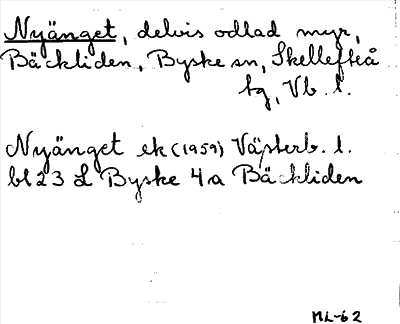 Nyänget, delvis odlad myr,
Bäckliden, Byske sn, Skellefteå
tg, Vb. l.
Nyänget ek (1959) Västerb. l.
bl 23 L Byske 4a Bäckliden
ML-62